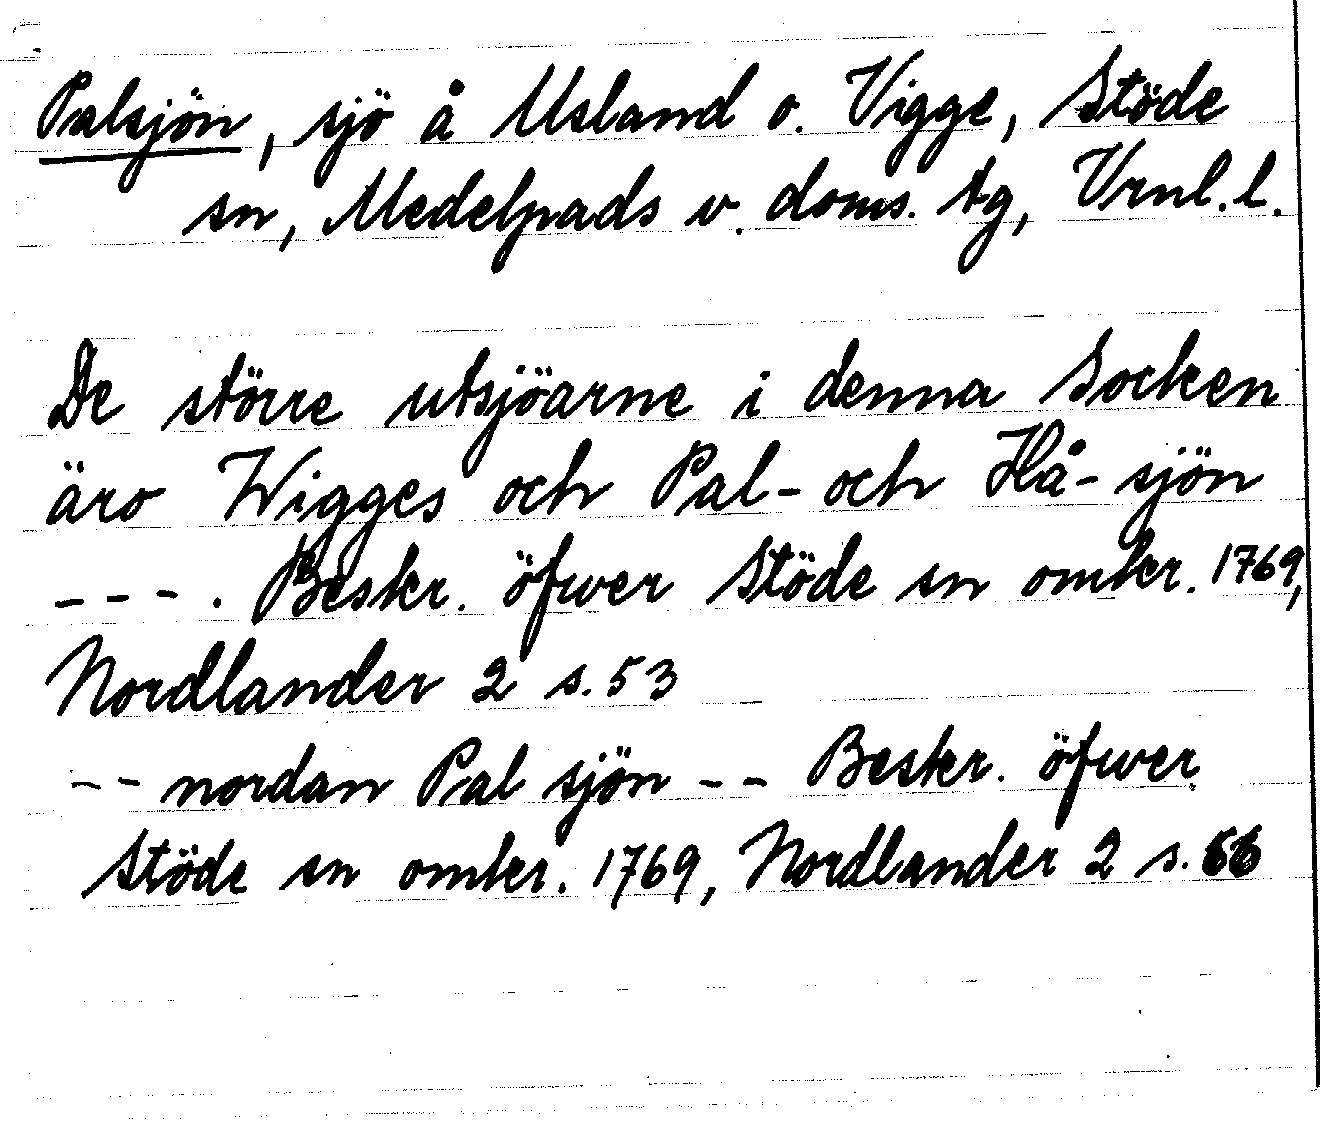 Palsjön, sjö å Usland o. Vigge, Stöde
sn, Medelpads v. doms. tg, Vrnl. l.
De större utsjöarne i denna Socken
äro Wigges och Pal- och Hå- sjön
--- . Beskr. öfwer Stöde sn omkr. 1769,
Nordlander 2 s. 53
-- nordan Pal sjön -- Beskr. öfwer
Stöde sn omkr. 1769, Nordlander 2 s.